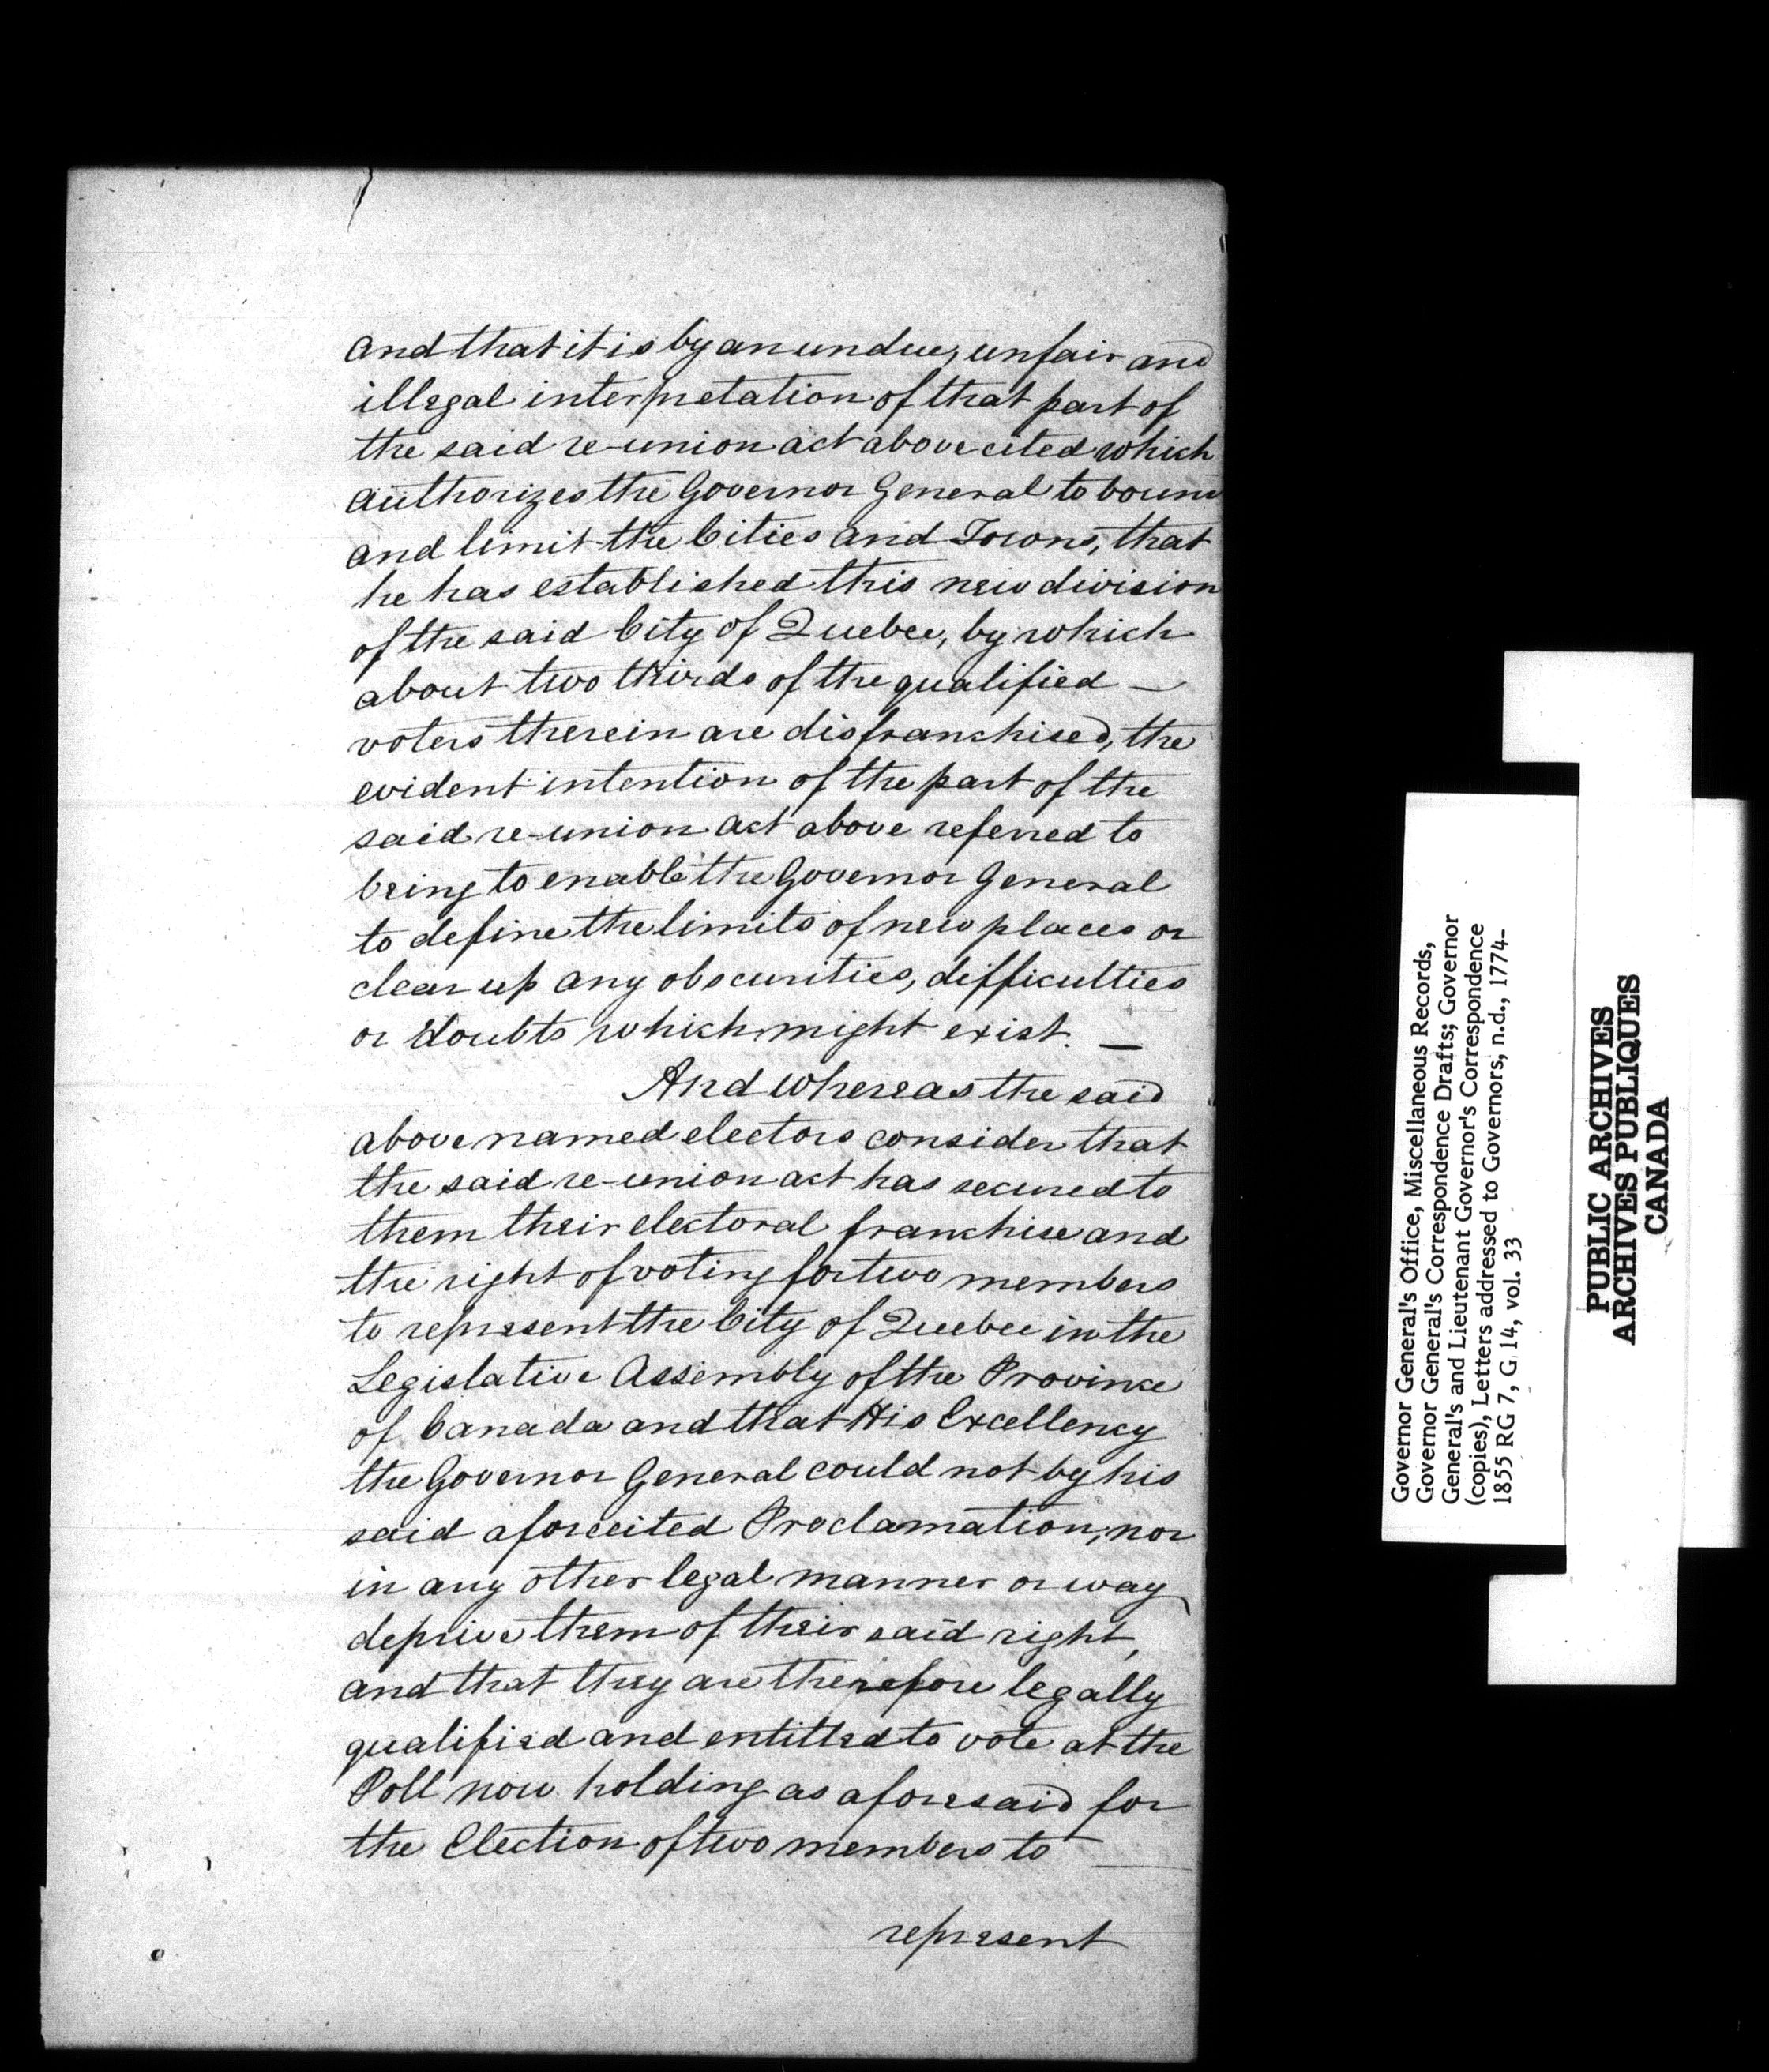 and that it is by an undue, unfair and
illegal interpretation of that part of
the said re-union act above cited which
authorizes the Governor General to bound
and limit the Cities and Towns, that
he has established this new division
of the said City of Quebec, by which
about two thirds of the qualified —
voters therein are disfranchised, the
evident intention of the part of the
said re-union act above referred to
being to enable the Governor General
to define the limits of new places or
clear up any obscurities, difficulties
or doubts which might exist. —
And whereas the said
above named electors consider that
the said re-union act has secured to
them their electoral franchise and
the right of voting for two members
to represent the City of Quebec in the
Legislative Assembly of the Province
of Canada and that His Excellency
the Governor General could not by his
said aforecited Proclamation, nor
in any other legal manner or way
deprive them of their said right,
and that they are therefore legally
qualified and entitled to vote at the
Poll now holding as aforesaid for
the Election of two members to —
represent
Governor General's Office, Miscellaneous Records,
Governor General's Correspondence Drafts; Governor
General's and Lieutenant Governor's Correspondence
(copies), Letters addressed to Governors, n.d., 1774-
1855 RG 7, G 14, vol. 33
PUBLIC ARCHIVES
ARCHIVES PUBLIQUES
CANADA